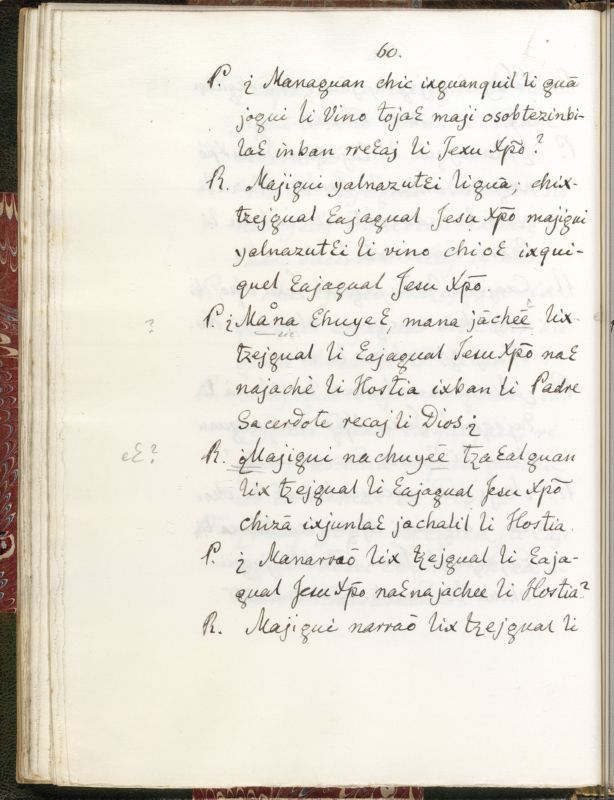 60.
P. ¿ Managuan chic ixguanquil li guā
jogui li Vino tojaƐ maji osobtezinbi-
laƐ inban rreƐaj li Jexu Xp̄o?
R. Majigui yalnazutƐi li guā, chix-
tzejgual Eajagual Jesu Xp̄o majigui
yalnazutƐi li vino chioƐ ixqui-
quel Eajagual Jesu Xp̄o.
? P. ¿Måna EhuyeƐ, mana jācheē lix-
tzejgual li Eajagual Jesu Xp̄o naƐ
najachè li Hostia ixban li Padre
Sacerdote recaj li Dios¿
eƐ? R. ¿Majigui nachuyeē tzaEalguan
lix tzejgual li Eajagual Jesu Xp̄o
chizā ixjunlaƐ jachalil li Hostia.
P. ¿ Manarraō lix tzejgual li Eaja-
gual Jesu Xp̄o naƐnajachee li Hostia?
R. Majigui narraō lix tzejgual li